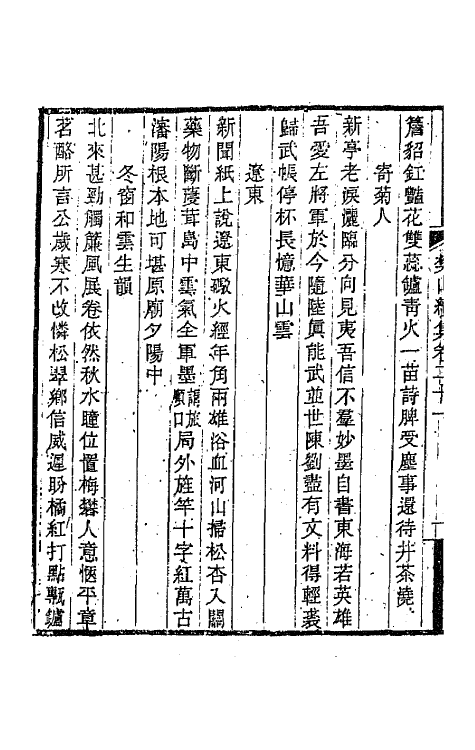 簷貂釭豔花雙蕊鑪靑火一苗詩脾受塵事還待井茶澆
寄菊人
新亭老淚灑臨分向見夷吾信不羣妙墨自書東海若英雄
吾愛左將軍於今隨陸眞能武並世陳劉盡有文料得輕裘
歸武帳停杯長憶華山雲
遼東
新聞紙上說遼東礮火經年角兩雄浴血河山掃松杏入關
藥物斷蓡茸島中雲氣全軍墨旅順口局外旌竿十字紅萬古
瀋陽根本地可堪原廟夕陽中
冬窗和雲生韻
北來甚勁觸簾風展卷依然秋水瞳位置梅礬人意愜平章
茗酪所言公歲寒不改憐松翠鄉信威遲盼橘紅打點甎鑪
樊山續集卷二十